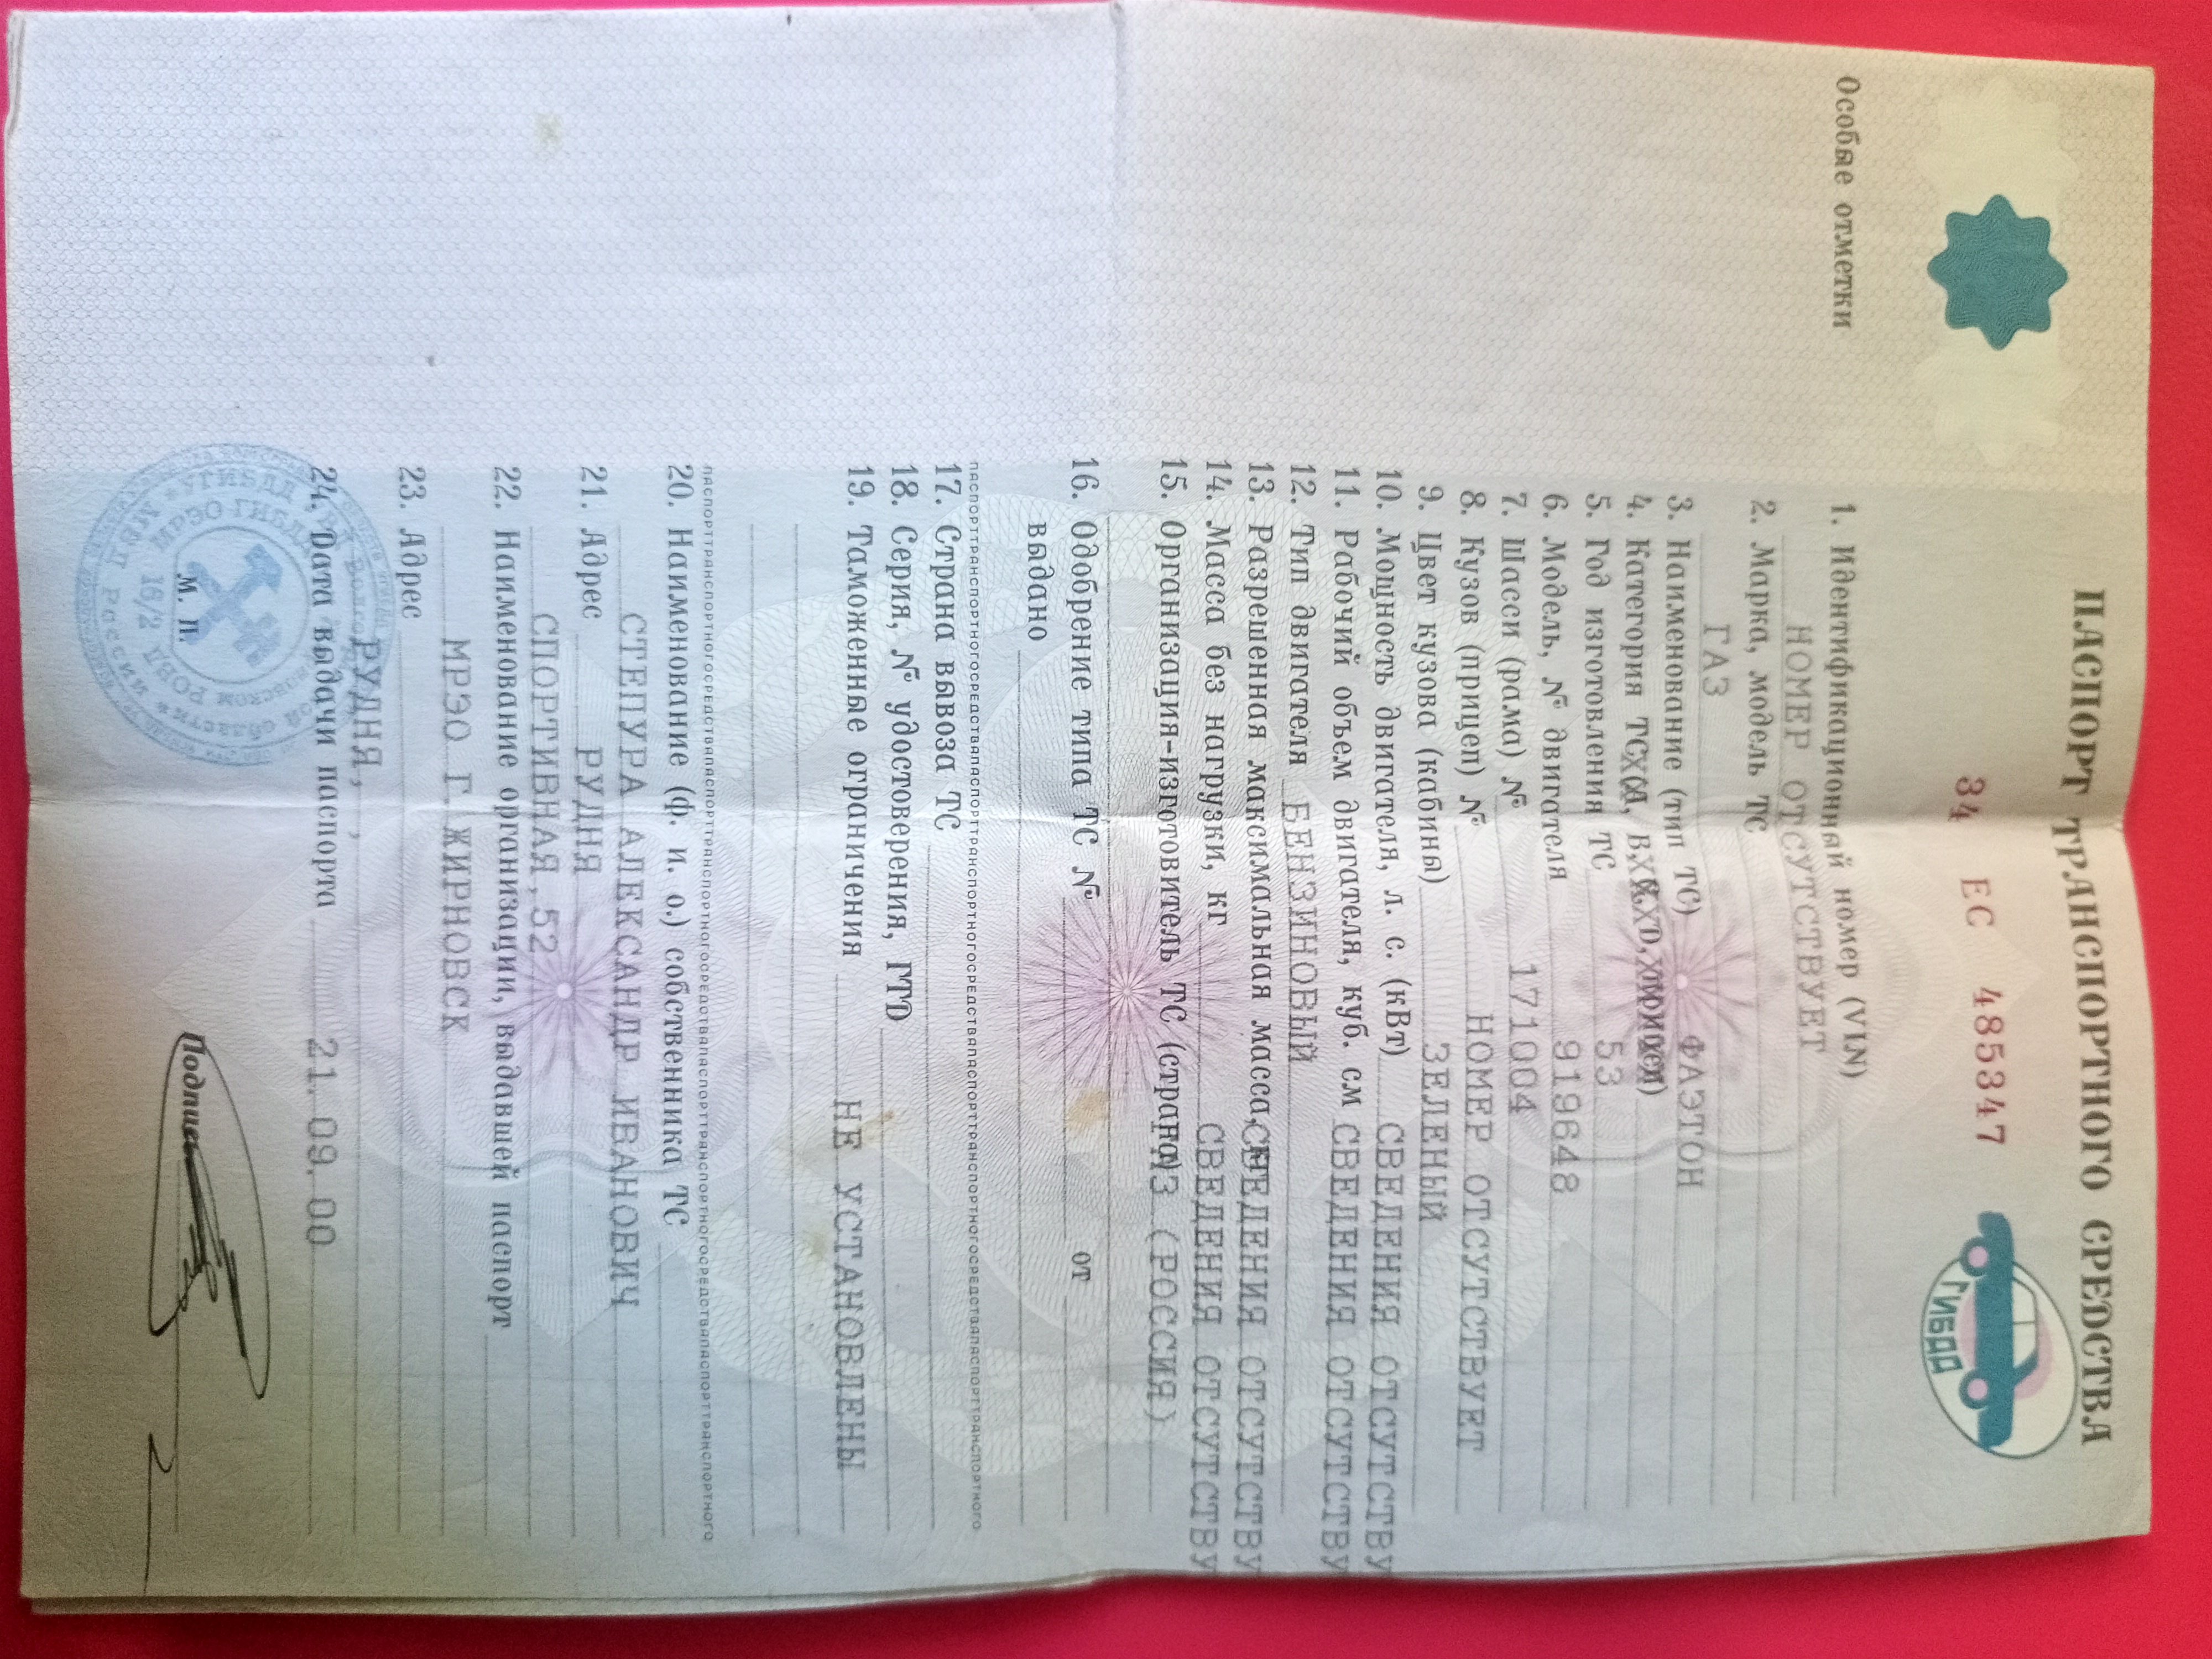 ПАСПОРТ ТРАНСПОРТНОГО СРЕДСТВА
34 ЕС 485347
ГИБДД
Особые отметки
1. Идентификационный номер (VIN)
НОМЕР ОТСУТСТВУЕТ
2. Марка, модель ТС
ГАЗ
3. Наименование (тип ТС) ФАЭТОН
4. Категория ТС
5. Год изготовления ТС 53
6. Модель, № двигателя 919648
7. Шасси (рама) № 171004
8. Кузов (прицеп) № НОМЕР ОТСУТСТВУЕТ
9. Цвет кузова (кабины) ЗЕЛЕНЫЙ
10. Мощность двигателя, л. с. (кВт) СВЕДЕНИЯ ОТСУТСТВУ
11. Рабочий объем двигателя, куб. см СВЕДЕНИЯ ОТСУТСТВУ
12. Тип двигателя БЕНЗИНОВЫЙ
13. Разрешенная максимальная масса, кг СВЕДЕНИЯ ОТСУТСТВУ
14. Масса без нагрузки, кг СВЕДЕНИЯ ОТСУТСТВУ
15. Организация-изготовитель ТС (страна) ГАЗ (РОССИЯ)
16. Одобрение типа ТС № от
выдано
17. Страна вывоза ТС
18. Серия, № удостоверения, ГТД
19. Таможенные ограничения НЕ УСТАНОВЛЕНЫ
20. Наименование (ф. и. о.) собственника ТС
СТЕПУРА АЛЕКСАНДР ИВАНОВИЧ
21. Адрес РУДНЯ
СПОРТИВНАЯ,52
22. Наименование организации, выдавшей паспорт
МРЭО Г.ЖИРНОВСК
23. Адрес
РУДНЯ, ,
24. Дата выдачи паспорта 21.09.00
М. П.
Подпись